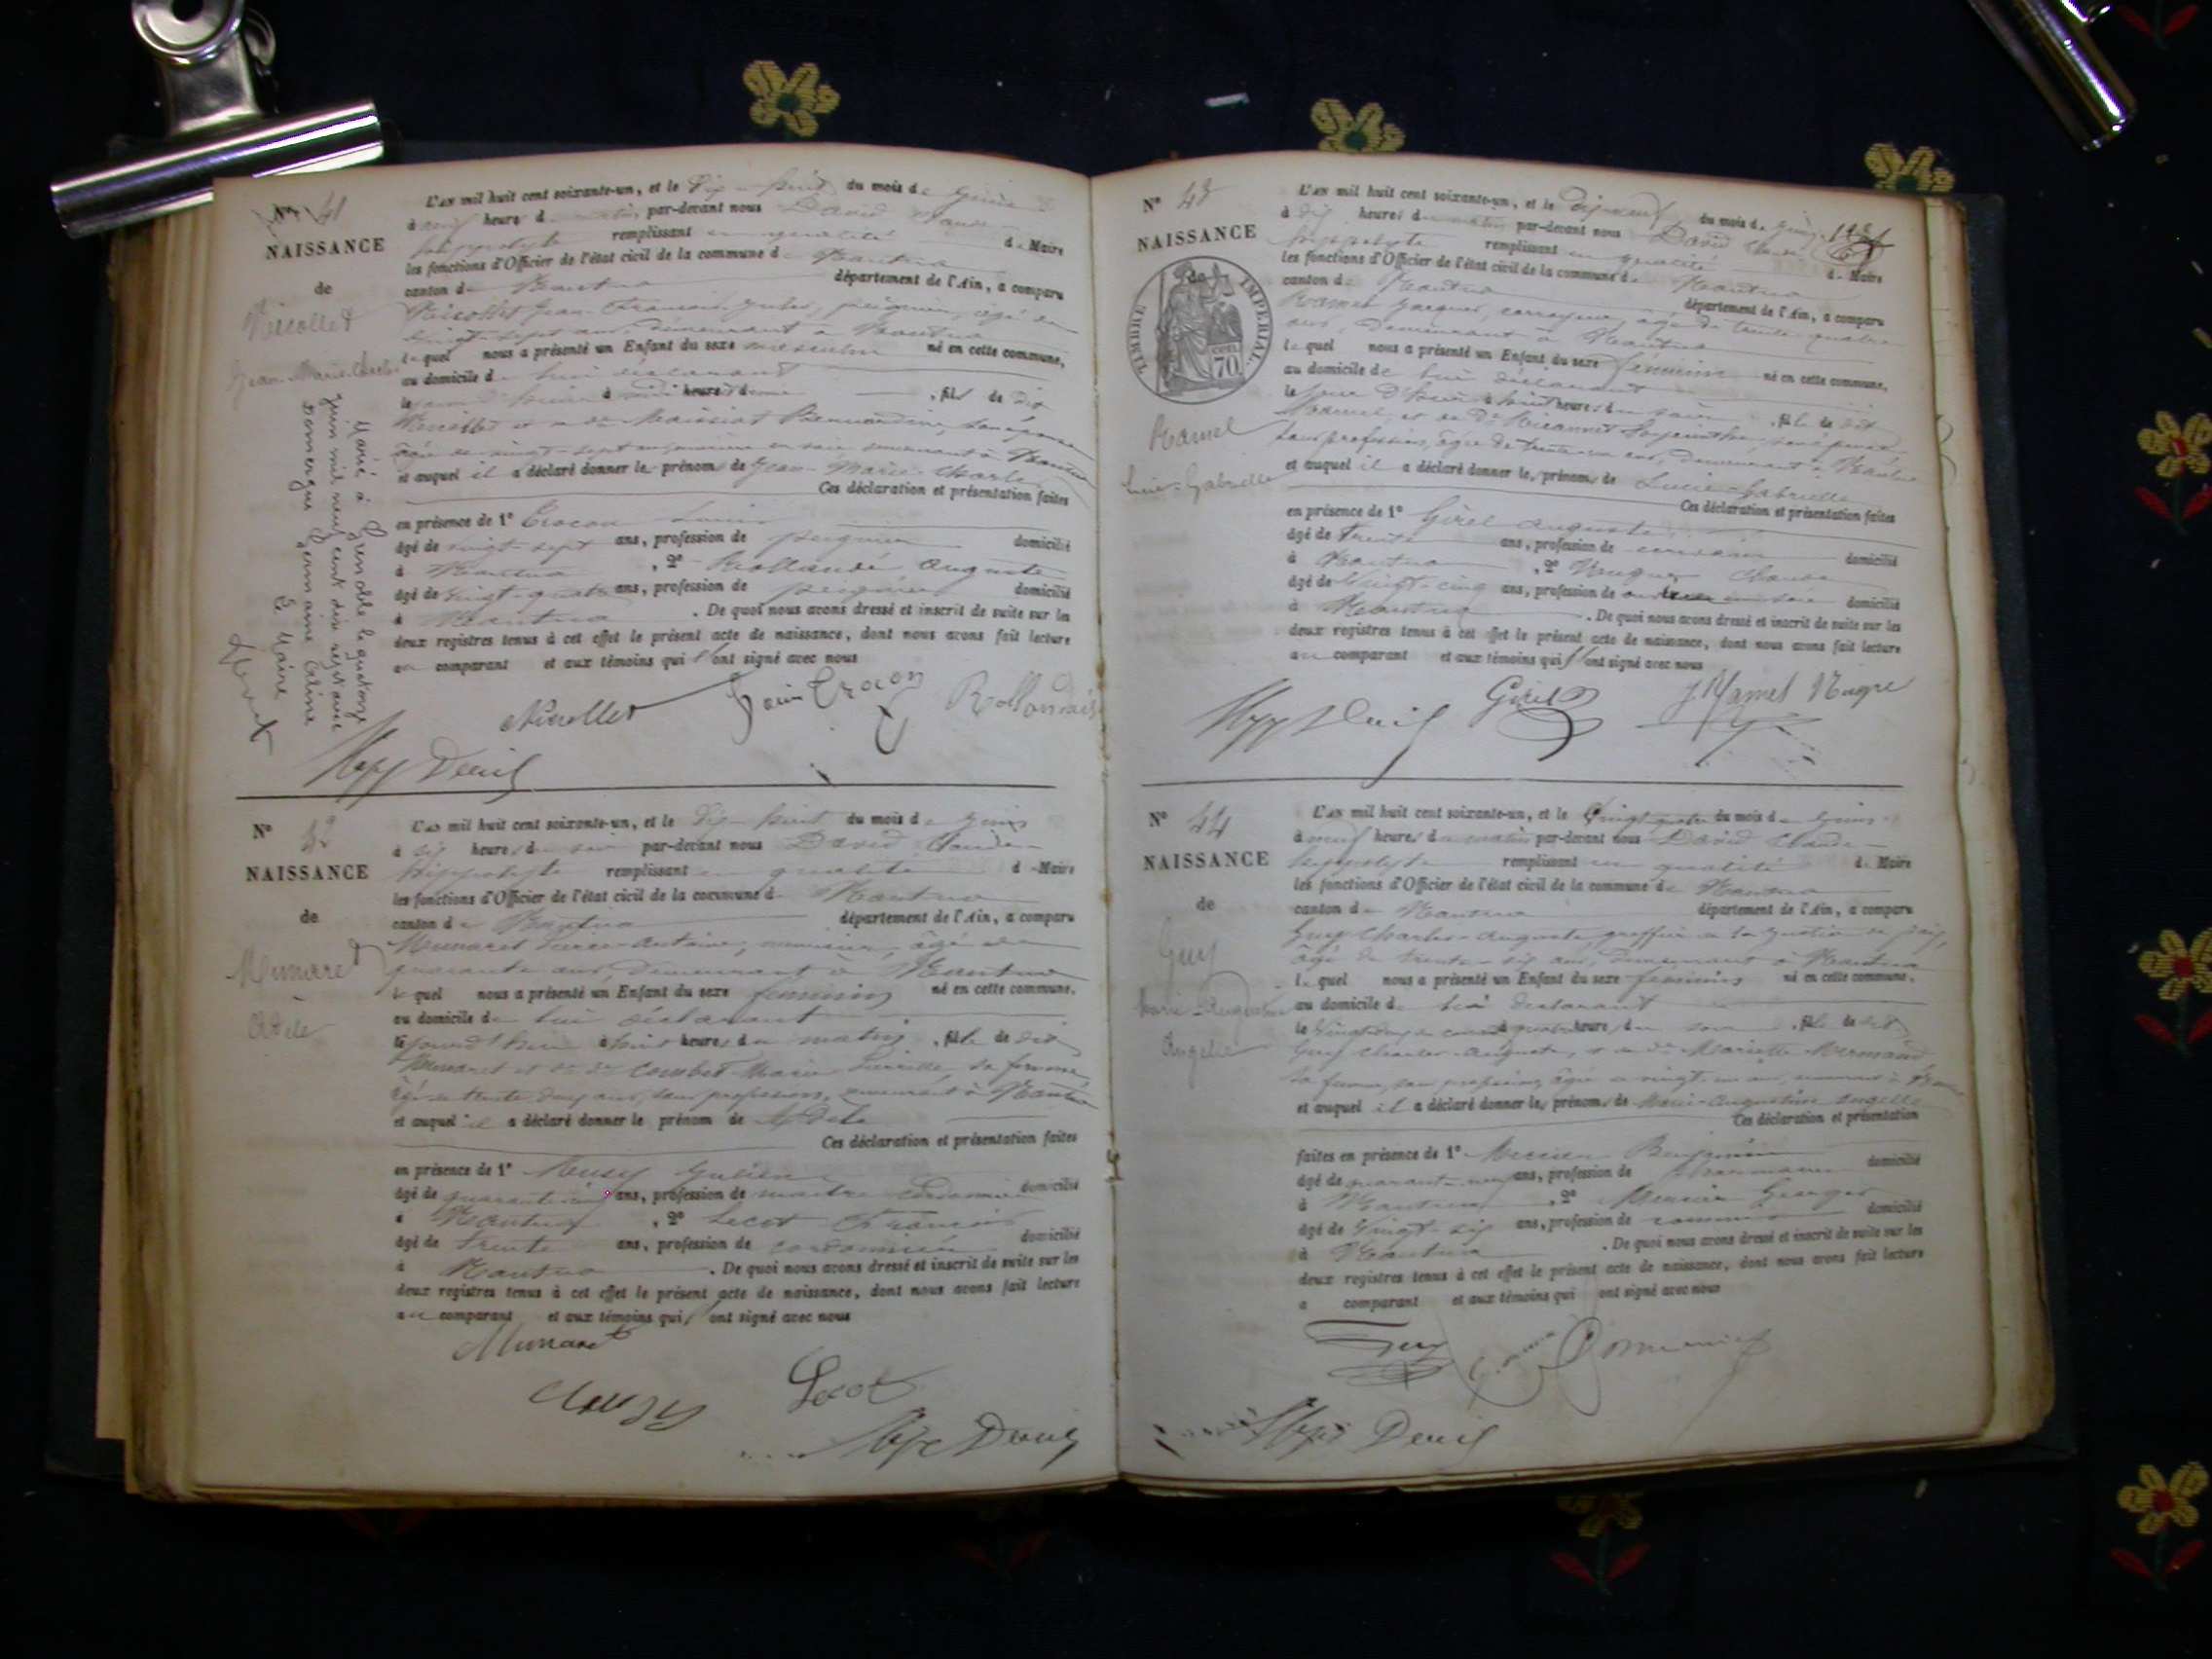 N° 41
NAISSANCE
de
Nicollet
Jean-Marie-Charles
Marié à Grenoble le quatorze
juin mil neuf cent dix sept avec
Germaine Céline
Le Maire
L'an mil huit cent soixante-un, et le dix-huit du mois de Juin
à neuf heures du matin, par-devant nous David Claude
hippolyte remplissant en qualité de Maire
les fonctions d'Officier de l'état civil de la commune de Nantua
canton de Nantua département de l'Ain, a comparu
Nicollet Jean François Jules, peignier, âgé de
vingt-sept ans, demeurant à Nantua
lequel nous a présenté un Enfant du sexe masculin né en cette commune,
au domicile de lui déclarant
le jour d'hier à midi heures, fils de dit
Nicollet et de Bernardine, son épouse
âgée de vingt-sept ans, en soie, demeurant à Nantua
et auquel il a déclaré donner les prénoms de Jean-Marie-Charles
Ces déclaration et présentation faites
en présence de 1° Crocon Louis
âgé de vingt-sept ans, profession de peignier domicilié
à Nantua, 2° Rollandis Auguste
âgé de vingt-quatre ans, profession de peignier domicilié
à Nantua. De quoi nous avons dressé et inscrit de suite sur les
deux registres tenus à cet effet le présent acte de naissance, dont nous avons fait lecture
au comparant et aux témoins qui l'ont signé avec nous
Nicollet Louis Crocon Rollandis
Hyp David
N° 42
NAISSANCE
de
Munaret
Adèle
L'an mil huit cent soixante-un, et le dix-huit du mois de Juin
à six heures du soir par-devant nous David Claude
hippolyte remplissant en qualité de Maire
les fonctions d'Officier de l'état civil de la commune de Nantua
canton de Nantua département de l'Ain, a comparu
Munaret Antoine, menuisier, âgé de
quarante ans, demeurant à Nantua
lequel nous a présenté un Enfant du sexe féminin né en cette commune,
au domicile de lui déclarant
le jourd'hui à huit heures du matin, fille de dit
Munaret et de de Combet Marie, sa femme
âgée de trente deux ans, sans profession, demeurant à Nantua
et auquel il a déclaré donner le prénom de Adèle
Ces déclaration et présentation faites
en présence de 1° Musy Julien
âgé de quarante cinq ans, profession de maître cordonnier domicilié
à Nantua, 2° Lecot François
âgé de trente ans, profession de cordonnier domicilié
à Nantua. De quoi nous avons dressé et inscrit de suite sur les
deux registres tenus à cet effet le présent acte de naissance, dont nous avons fait lecture
au comparant et aux témoins qui l'ont signé avec nous
Munaret
Musy Lecot
Hyp David
N° 43
NAISSANCE
de
TIMBRE IMPERIAL
70
Ramel
Lucie-Gabrielle
L'an mil huit cent soixante-un, et le dix-neuf du mois de Juin
à dix heures du matin par-devant nous David Claude
hippolyte remplissant en qualité de Maire
les fonctions d'Officier de l'état civil de la commune de Nantua
canton de Nantua département de l'Ain, a comparu
Ramel Jacques, corroyeur, âgé de trente-quatre
ans, demeurant à Nantua
lequel nous a présenté un Enfant du sexe féminin né en cette commune,
au domicile de lui déclarant
le jour d'hier à huit heures du soir, fille de dit
Ramel, et de De
sans profession, âgée de trente-un ans, demeurant à Nantua
et auquel il a déclaré donner les prénoms de Lucie-Gabrielle
Ces déclaration et présentation faites
en présence de 1° Girel Auguste
âgé de trente ans, profession de domicilié
à Nantua, 2° Claude
âgé de vingt-cinq ans, profession de en soie domicilié
à Nantua. De quoi nous avons dressé et inscrit de suite sur les
deux registres tenus à cet effet le présent acte de naissance, dont nous avons fait lecture
au comparant et aux témoins qui l'ont signé avec nous
Hyp David Girel J Ramel
N° 44
NAISSANCE
de
Guy
Marie-Augustine
Angelle
L'an mil huit cent soixante-un, et le vingt quatre du mois de Juin
à neuf heures du matin par-devant nous David Claude
hippolyte remplissant en qualité de Maire
les fonctions d'Officier de l'état civil de la commune de Nantua
canton de Nantua département de l'Ain, a comparu
Guy Charles-Auguste, greffier de la Justice de paix,
âgé de trente-six ans, demeurant à Nantua
lequel nous a présenté un Enfant du sexe féminin né en cette commune,
au domicile de lui déclarant
le vingt deux courant à quatre heures du soir, fille de dit
Guy Charles-Auguste, et de de Mariette Mermand
sa femme, sans profession, âgée de vingt-un ans, demeurant à Nantua
et auquel il a déclaré donner les prénoms de Marie-Augustine Angelle
Ces déclaration et présentation
faites en présence de 1° Mercier Benjamin
âgé de quarante-neuf ans, profession de domicilié
à Nantua, 2° Mercier Georges
âgé de vingt-six ans, profession de commis domicilié
à Nantua. De quoi nous avons dressé et inscrit de suite sur les
deux registres tenus à cet effet le présent acte de naissance, dont nous avons fait lecture
a comparant et aux témoins qui ont signé avec nous
Guy
Hyp David